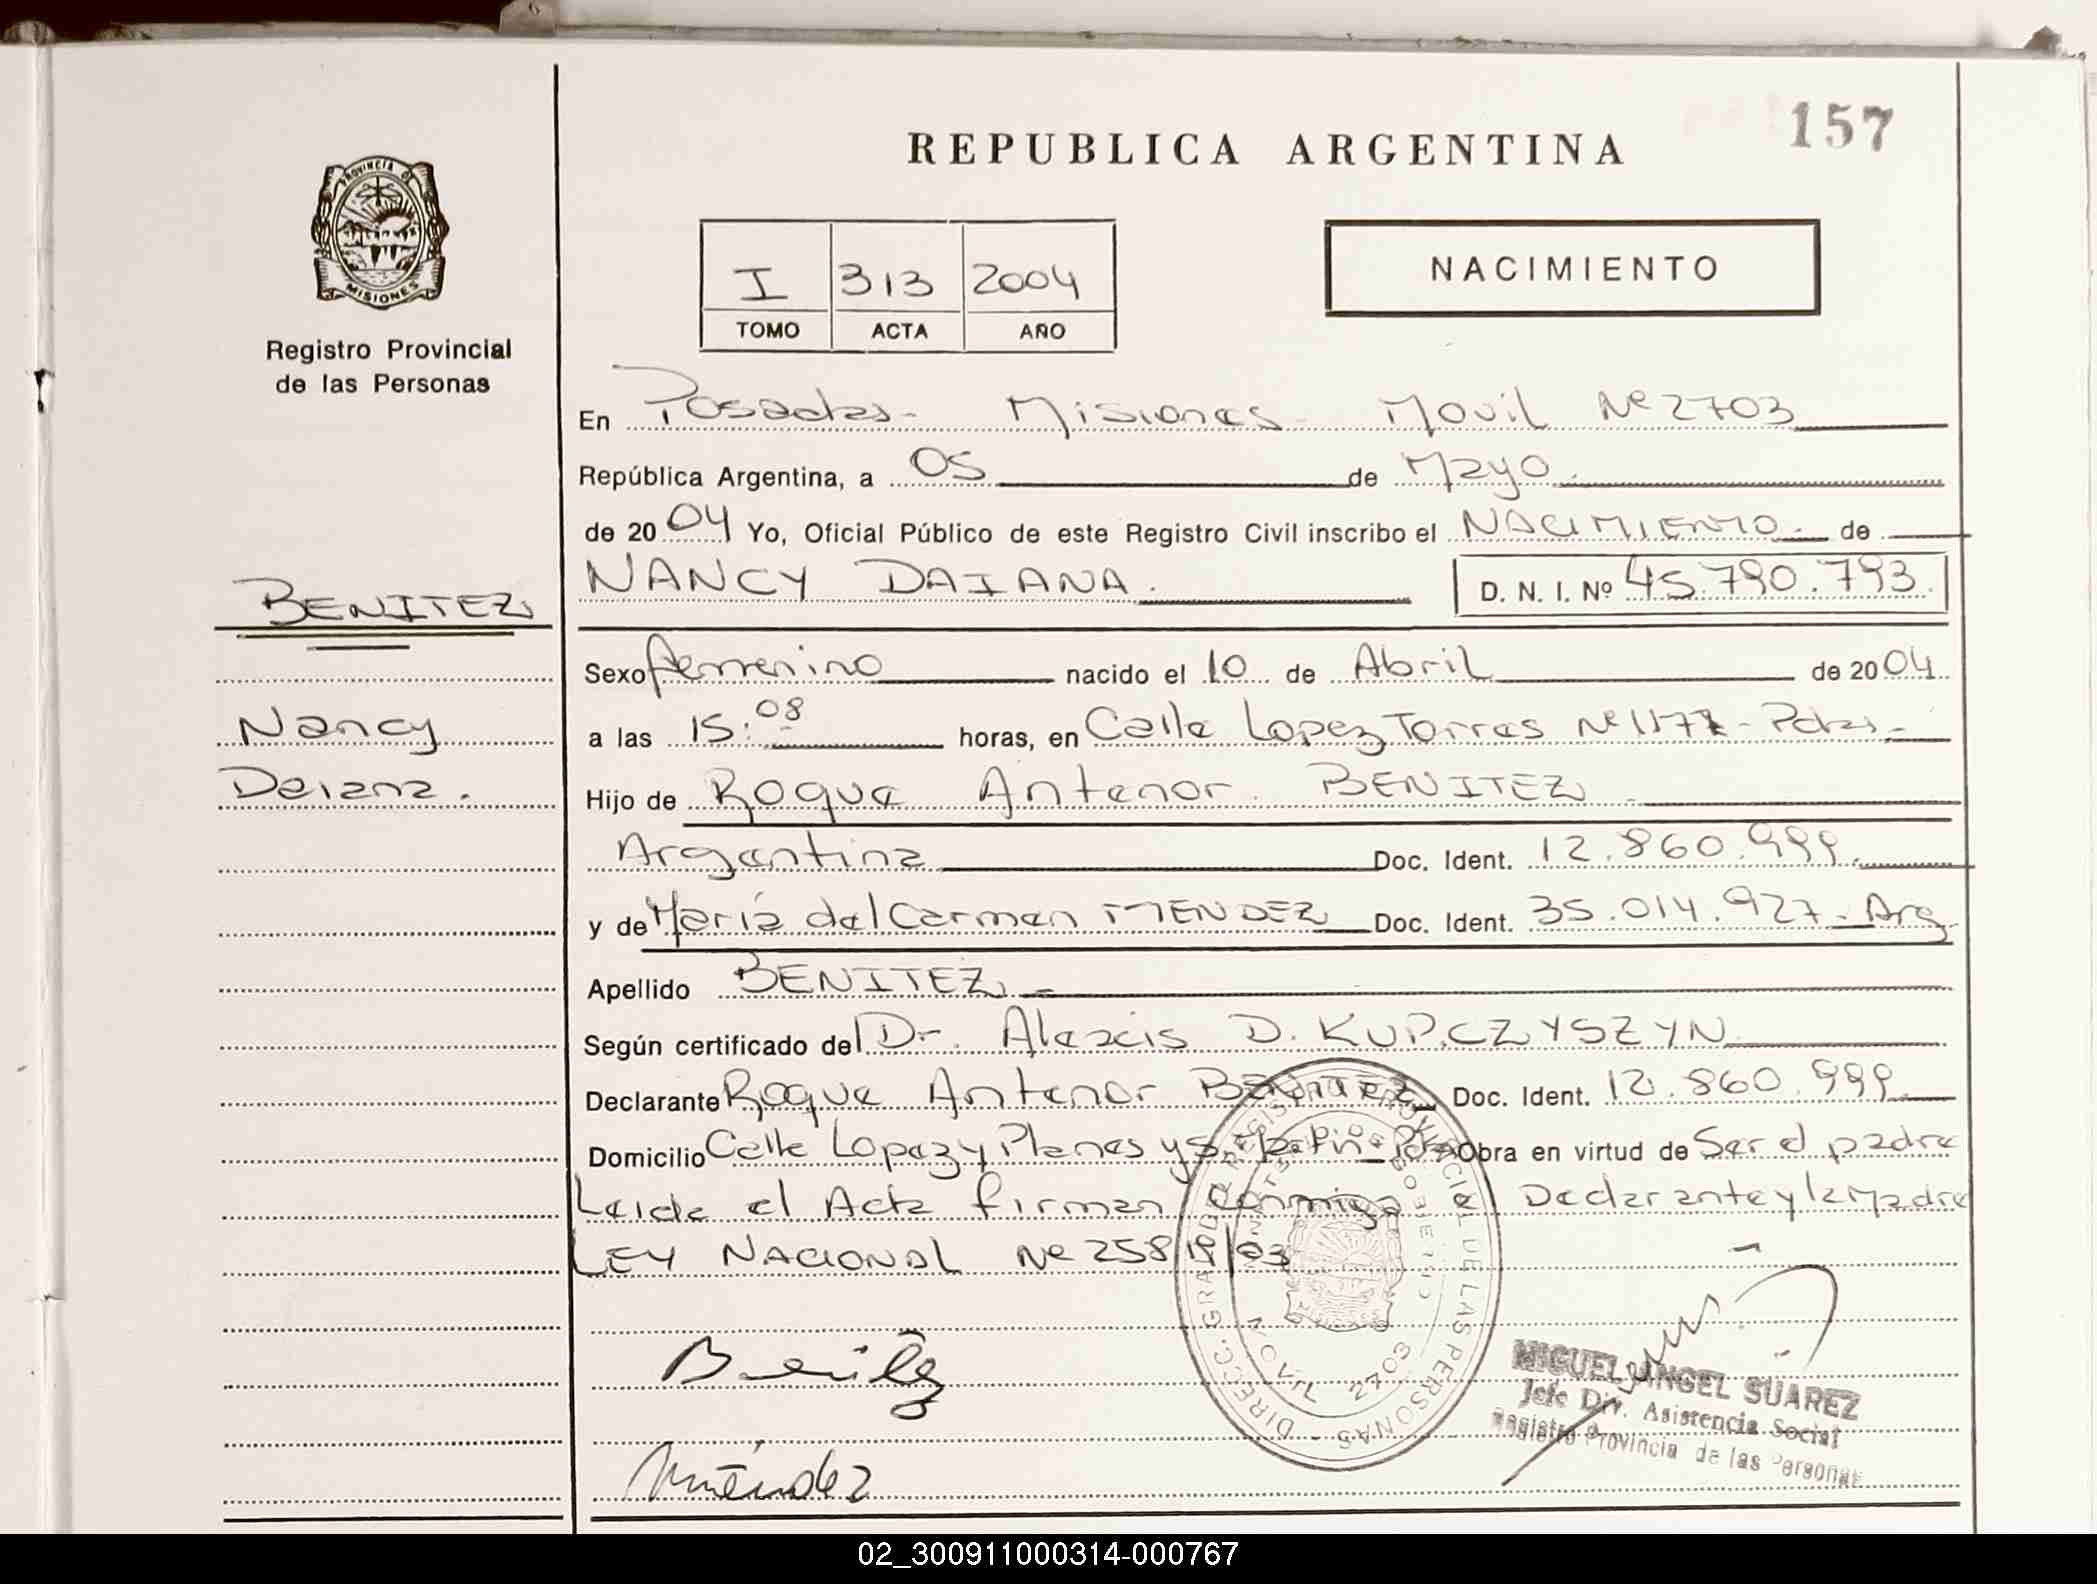 157
REPUBLICA ARGENTINA
PROVINCIA DE
MISIONES
Registro Provincial
de las Personas
I 313 2004
TOMO ACTA AÑO
NACIMIENTO
En Posadas - Misiones - Movil Nº 2703
República Argentina, a 05 de Mayo
de 2004 Yo, Oficial Público de este Registro Civil inscribo el NACIMIENTO de
NANCY DAIANA. D. N. I. Nº 45.790.793
BENITEZ
Nancy
Daiana.
Sexo femenino nacido el 10 de Abril de 2004
a las 15:08 horas, en Calle Lopez Torres Nº 1177 - Pdas -
Hijo de Roque Antenor BENITEZ
Argentina Doc. Ident. 12.860.999
y de María del Carmen MENDEZ Doc. Ident. 35.014.927 - Arg
Apellido BENITEZ -
Según certificado del Dr. Alexis D. KUPCZYSZYN
Declarante Roque Antenor BENITEZ Doc. Ident. 12.860.999
Domicilio Calle Lopez y Planes y S. Martin - Pdas Obra en virtud de Ser el padre
Leida el Acta firman conmigo Declarante y la Madre
LEY NACIONAL Nº 25819/03
Benitez
Méndez
DIRECC. GRAL. DEL REGISTRO PROVINCIAL DE LAS PERSONAS
MINISTERIO DE GOBIERNO
MOVIL 2703
MIGUEL ANGEL SUAREZ
Jefe Div. Asistencia Social
Registro Provincia de las Personas
02_300911000314-000767